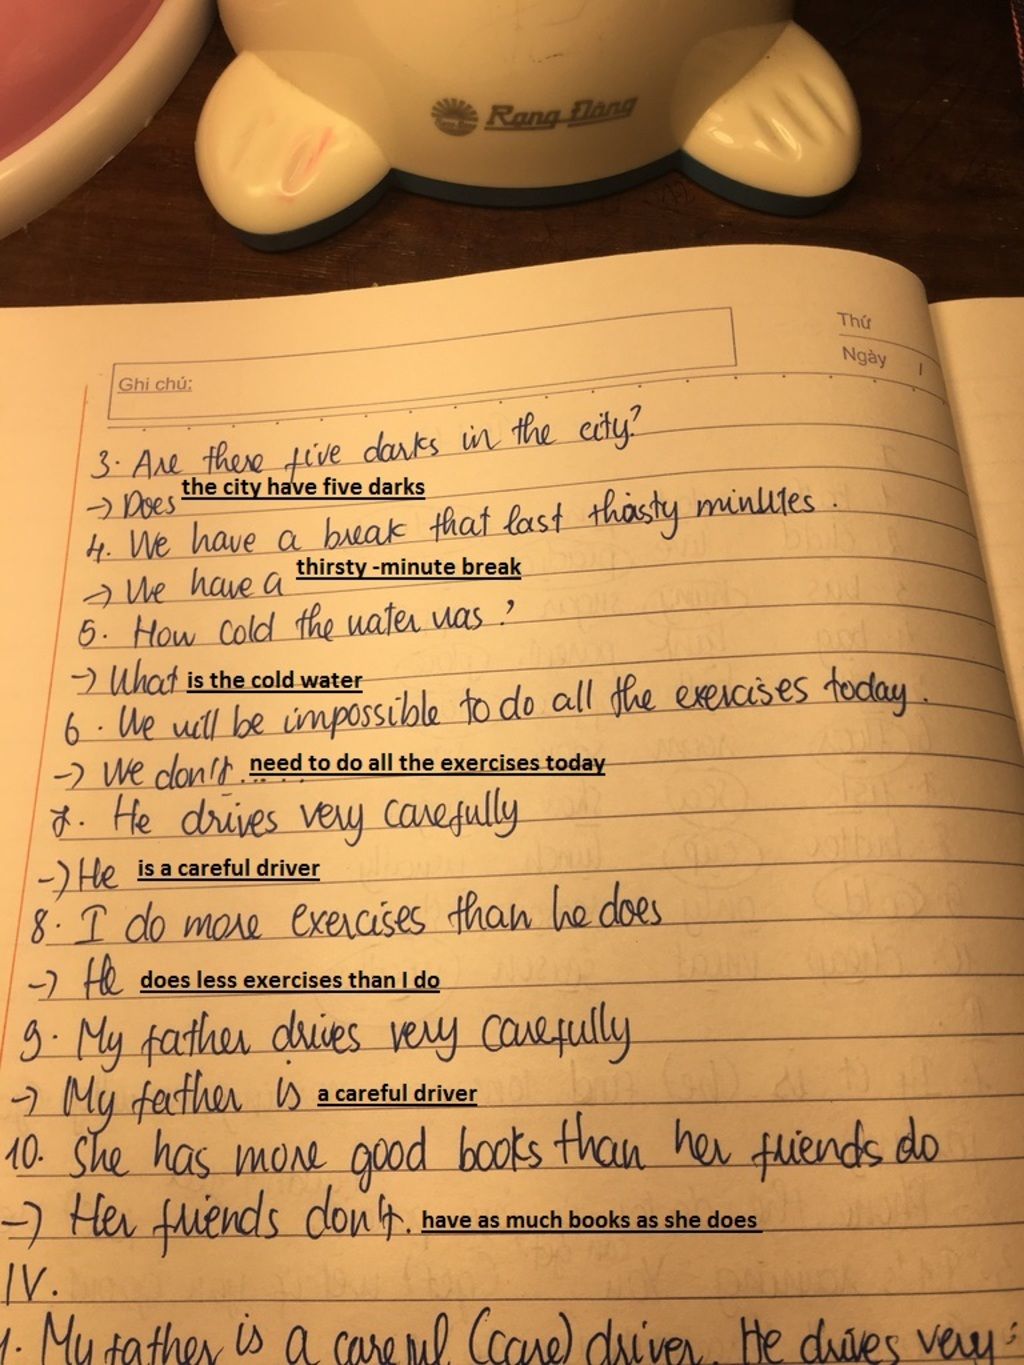 Rạng Đông
Thứ
Ngày
Ghi chú:
3. Are there five darks in the city?
→ Does the city have five darks
4. We have a break that last thirsty minutes.
→ We have a thirsty -minute break
5. How cold the water was?
→ What is the cold water
6. We will be impossible to do all the exercises today.
→ We don't need to do all the exercises today
7. He drives very carefully
→ He is a careful driver
8. I do more exercises than he does
→ He does less exercises than I do
9. My father drives very carefully
→ My father is a careful driver
10. She has more good books than her friends do
→ Her friends don't. have as much books as she does
IV.
1. My father is a careful (care) driver. He drives very